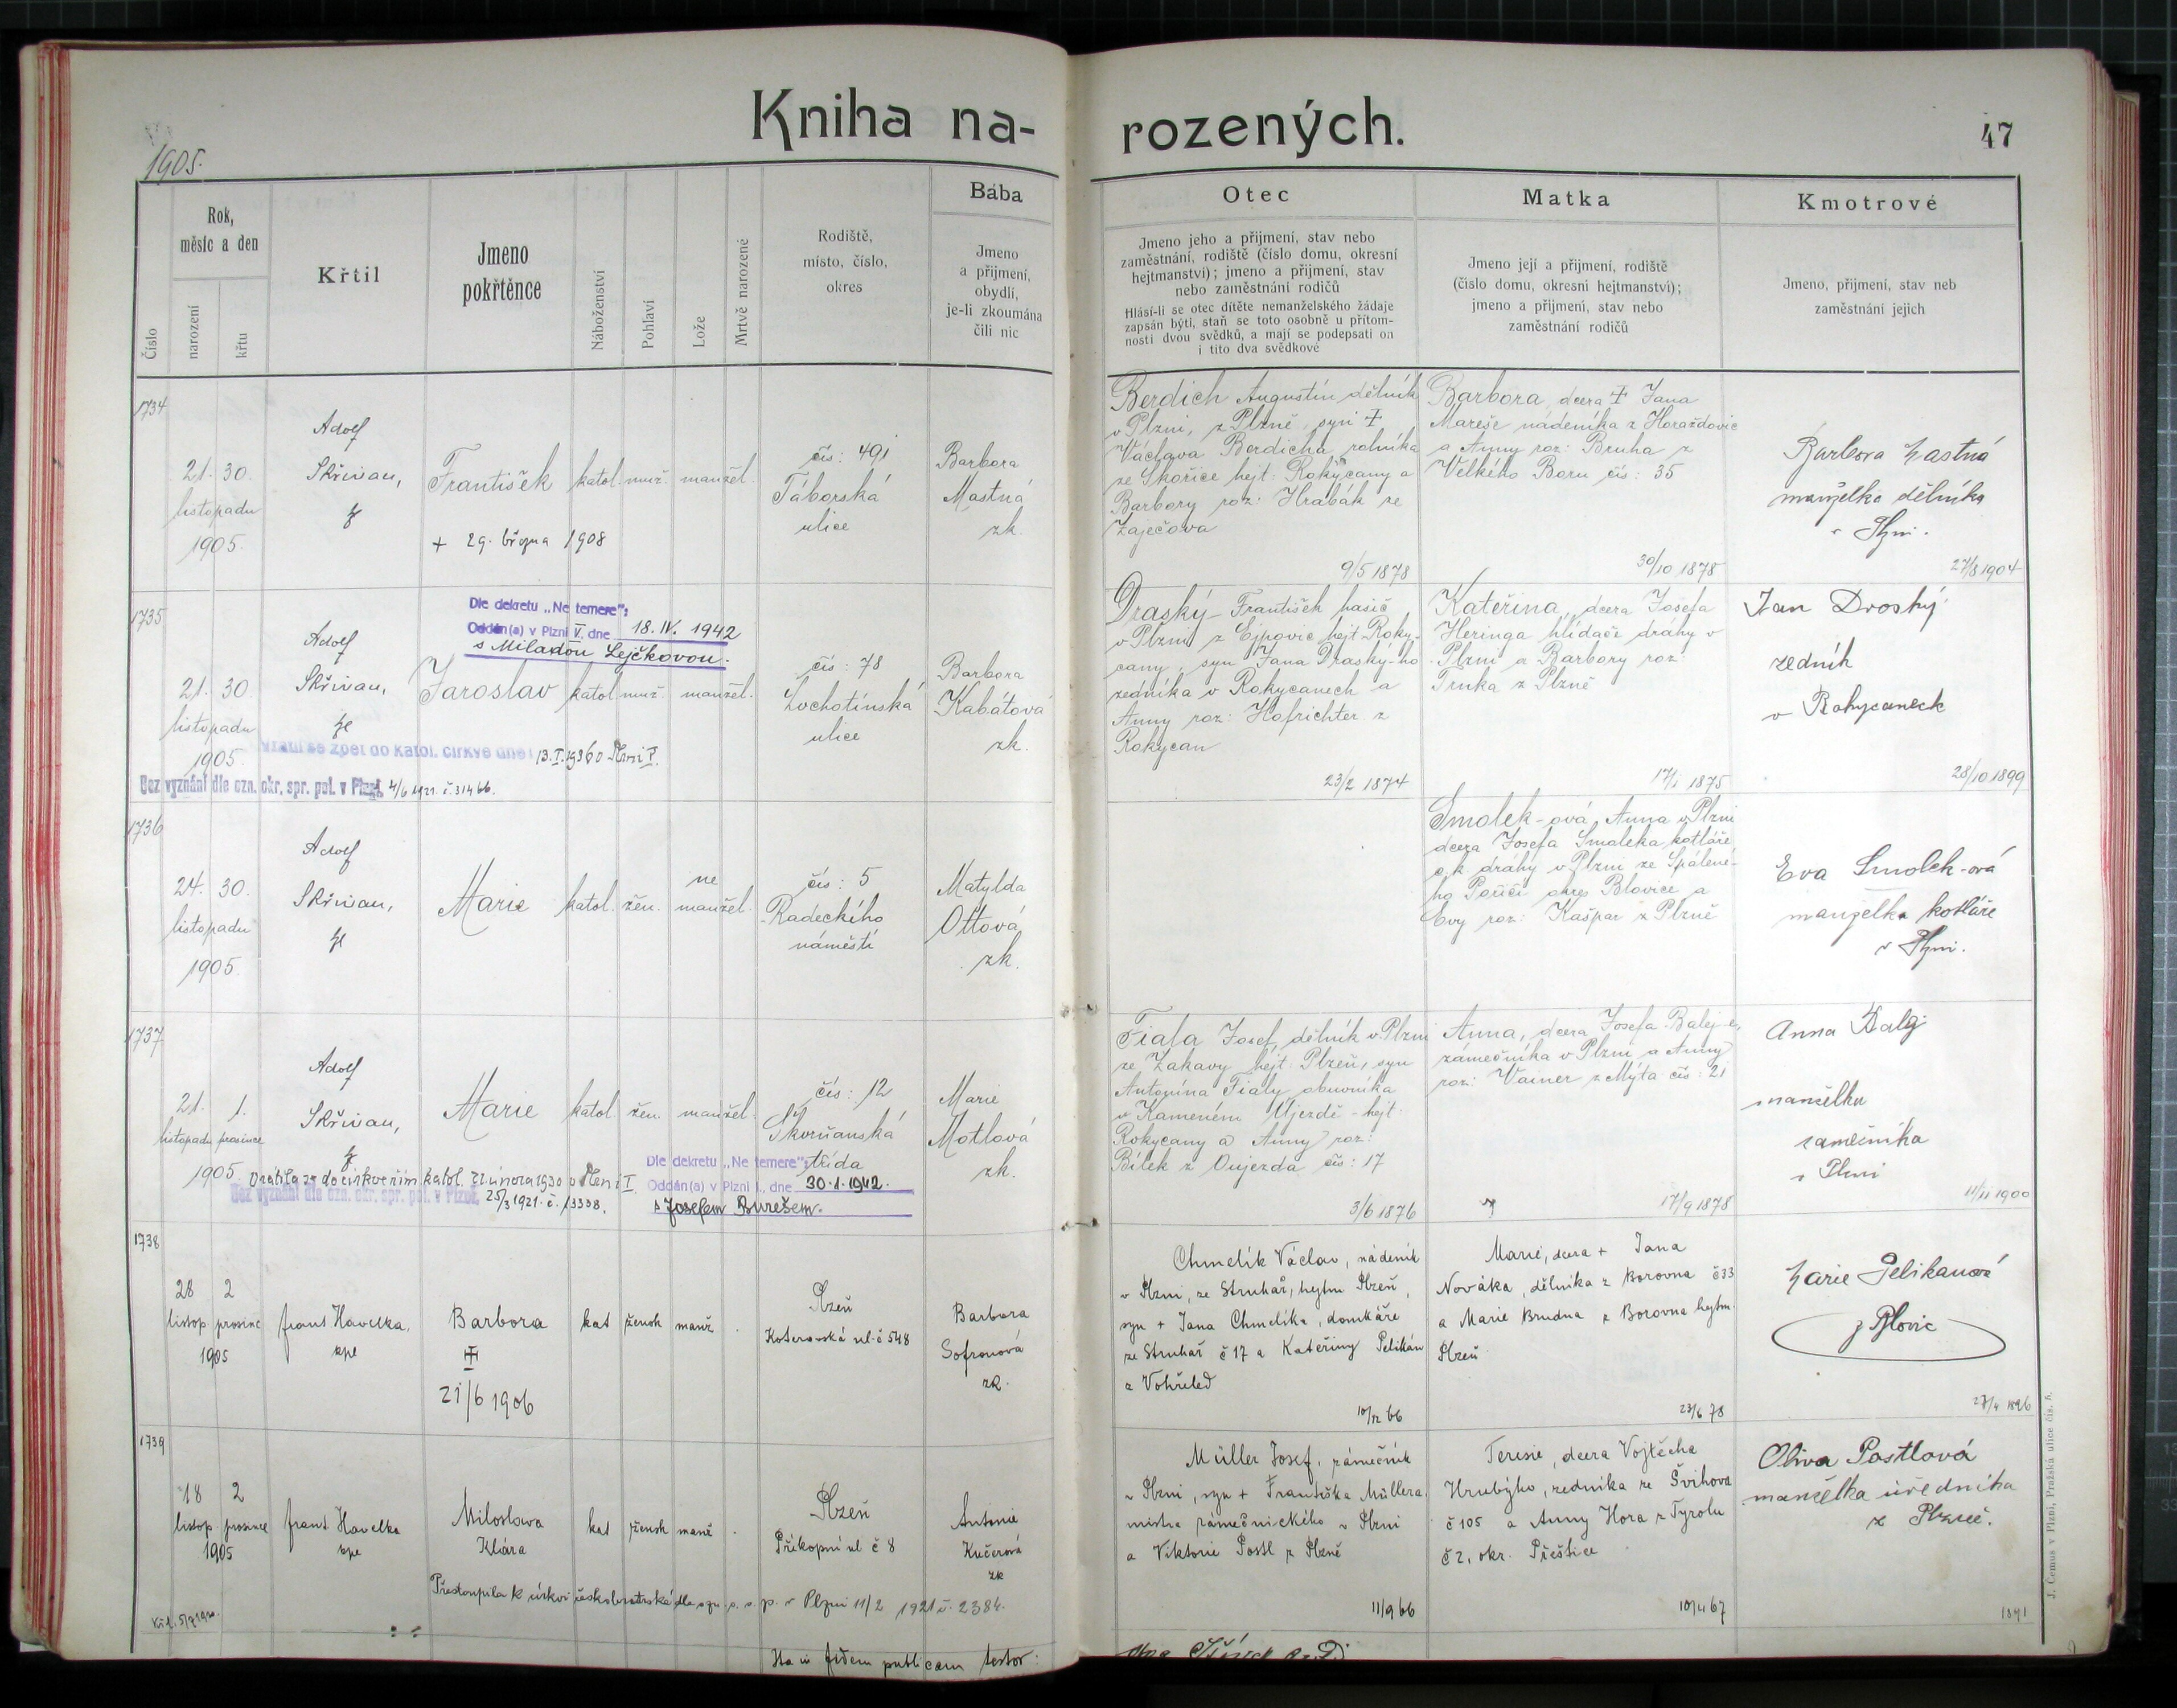 Kniha na-
rozených.
47
1905.
Číslo
Rok,
měsíc a den
narození
křtu
Křtil
Jmeno
pokřtěnce
Náboženství
Pohlaví
Lože
Mrtvě narozené
Rodiště,
místo, číslo,
okres
Bába
Jmeno
a přijmení,
obydlí,
je-li zkoumána
čili nic
Otec
Jmeno jeho a přijmení, stav nebo
zaměstnání, rodiště (číslo domu, okresní
hejtmanství); jmeno a přijmení, stav
nebo zaměstnání rodičů
Hlásí-li se otec dítěte nemanželského žádaje
zapsán býti, staň se toto osobně u přítom-
nosti dvou svědků, a mají se podepsati on
i tito dva svědkové
Matka
Jmeno její a přijmení, rodiště
(číslo domu, okresní hejtmanství);
jmeno a přijmení, stav nebo
zaměstnání rodičů
Kmotrové
Jmeno, přijmení, stav neb
zaměstnání jejich
1734
21. 30.
listopadu
1905.
Adolf
Skřivan,
František
+ 29. března 1908
katol. muž. manžel.
čís: 491
Táborská
ulice
Barbora
Mastná
zk.
Berdich Augustin dělník
v Plzni, z Plzně, syn ‡
Václava Berdicha rolníka
ze Skořice hejt: Rokycany a
Barbory roz: Hrabák ze
Zaječova
9/5 1878
Barbora, dcera ‡ Jana
Mareše nádeníka z Horažďovic
a Anny roz: Bruha z
Velkého Boru čís: 35
30/10 1878
Barbora
manželka dělníka
v Plzni.
27/8 1904
1735
Dle dekretu „Ne temere":
Oddán(a) v Plzni V. dne 18. IV. 1942
s Miladou Lejčkovou.
21. 30.
listopadu
1905.
Adolf
Skřivan,
Jaroslav
katol. muž. manžel.
čís: 78
Lochotínská
ulice
Barbora
Kabátová
zk.
Vrátil se zpět do katol. církve dne 13. I. 1936 v Plzni I.
Bez vyznání dle ozn. okr. spr. pol. v Plzni, 4/6 1921. č. 31466.
Draský František hasič
v Plzni z Ejpovic hejt. Roky-
cany, syn Jana Draský-ho
zedníka v Rokycanech a
Anny roz: Hofrichter z
Rokycan
23/2 1874
Kateřina, dcera Josefa
Heringa hlídače dráhy v
Plzni a Barbory roz:
Trnka z Plzně
17/1 1875
Jan Droský
zedník
v Rokycanech
28/10 1899
1736
24. 30.
listopadu
1905.
Adolf
Skřivan,
Marie
katol. žen. ne
manžel.
čís: 5
Radeckího
náměstí
Matylda
Ottová
zk.
Smolek-ová, Anna v Plzni
dcera Josefa Smoleka kotláře
c. k. dráhy v Plzni ze Spálené-
ho Poříčí okres Blovice a
Evy roz: Kašpar z Plzně
Eva Smolek-ová
manželka kotláře
v Plzni.
1737
21. 1.
listopadu prosince
1905.
Adolf
Skřivan,
Marie
katol žen. manžel.
čís: 12
Škvrňanská
třída
Marie
Motlová
zk.
Vrátila se do církve řím. katol. 21 února 1930 v Plzni I.
Bez vyznání dle ozn. okr. spr. pol. v Plzni, 25/3 1921. č. 13338.
Dle dekretu „Ne temere":
Oddán(a) v Plzni I., dne 30.1.1942.
s Josefem Burešem.
Fiala Josef, dělník v Plzni
ze Zakavy hejt: Plzeň, syn
Antonína Fialy obuvníka
v Kameném Újezdě - hejt:
Rokycany a Anny roz:
Bílek z Oujezda čís: 17
3/6 1876
Anna, dcera Josefa Balej-e,
zámečníka v Plzni a Anny
roz: Vainer z Mýta čís: 21
17/9 1878
Anna
manželka
zámečníka
v Plzni
11/11 1900
1738
28 2
listop. prosince
1905
Frant Havelka,
kpe
Barbora
‡
21/6 1906
kat žensk manž.
Plzeň
Koterovská ul. č 548
Barbora
Sofronová
zk.
Chmelík Václav, nádeník
v Plzni, ze Struhař, hejtm Plzeň,
syn + Jana Chmelíka, domkáře
ze Struhař č 17 a Kateřiny Pelikán
z Vohřeled
10/12 66
Marie, dcera + Jana
Nováka, dělníka z Borovna č 33
a Marie Brudna z Borovna hejtm.
Plzeň
23/6 78
Marie Pelikanová
z Blovic
27/4 1896
1739
18 2
listop prosince
1905
Frant Havelka
kpe
Miloslava
Klára
kat žensk manž
Plzeň
Příkopní ul č 8
Antonie
Kučerová
zk
Přestoupila k církvi českobratrské dle ozn. o. s. p. v Plzni 11/2 1921 č. 2384.
Müller Josef, zámečník
v Plzni, syn + Františka Müllera
mistra zámečnického v Plzni
a Viktorie Postl z Plzně
11/9 66
Teresie, dcera Vojtěcha
Hrubýho, zedníka ze Švihova
č 105 a Anny Hora z Tyrolu
č 2, okr. Přeštice
10/4 67
Oliva Postlová
manželka úředníka
z Plzně.
1891
Ita in fidem publicam testor:
J. Čemus v Plzni, Pražská ulice čís.